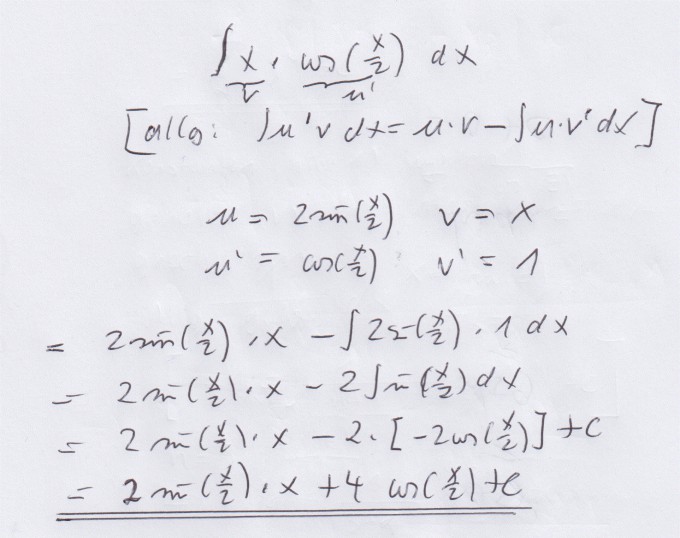 ∫ x · cos(x/2) dx
v u'
[allg: ∫u'v dx = u·v − ∫u·v' dx]
u = 2sin(x/2) v = x
u' = cos(x/2) v' = 1
= 2sin(x/2) · x − ∫2sin(x/2) · 1 dx
= 2sin(x/2) · x − 2∫sin(x/2) dx
= 2sin(x/2) · x − 2·[−2cos(x/2)] + C
= 2sin(x/2) · x + 4 cos(x/2) + C